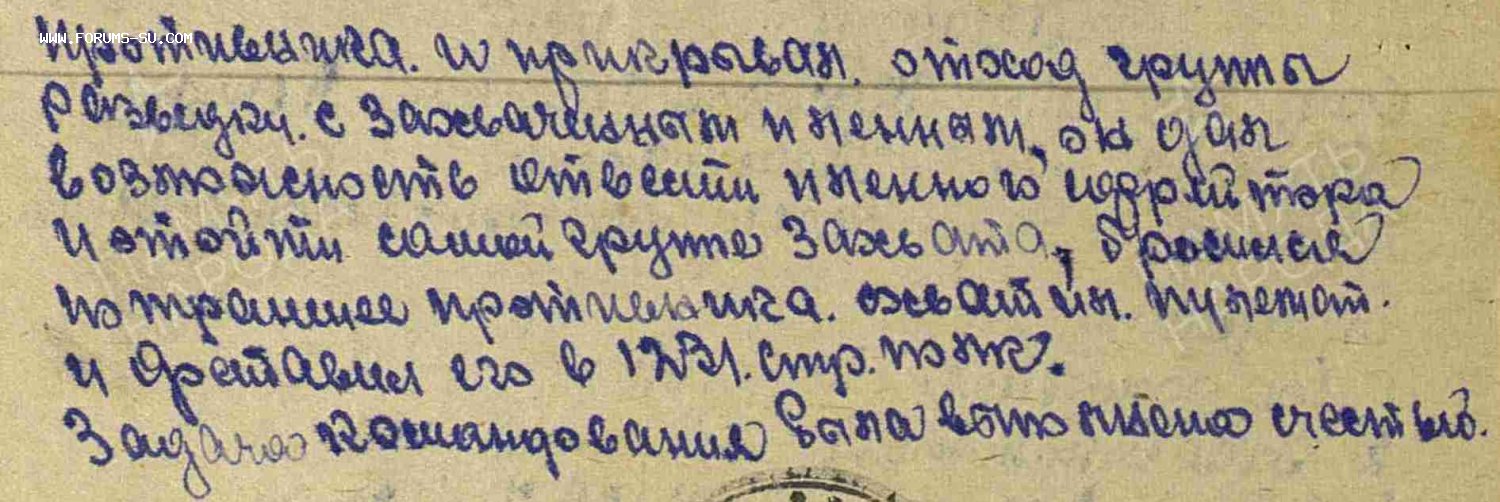 WWW.FORUMS-SU.COM
противника. и прикрывая. отход группы
разведки. с захваченным пленным, он дал
возможность отвести пленного
и отойти самой группе захвата, бросился
по траншее противника. схватил. пулемет.
и доставил его в 1231. стр. полк.
Задача командования была выполнена счестью.